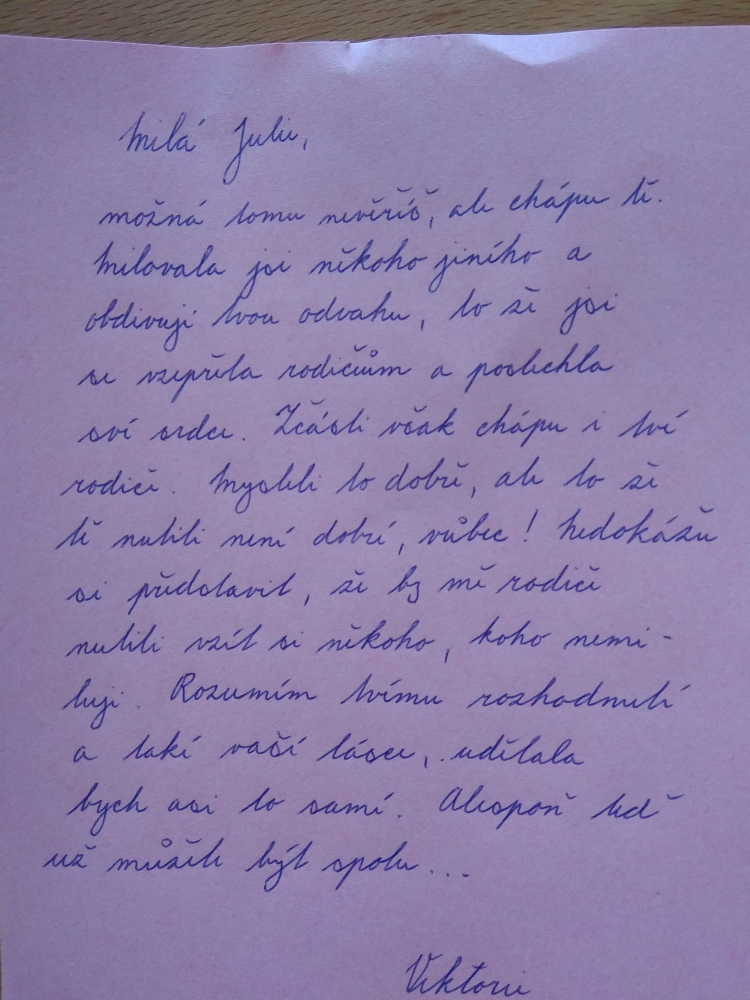 Milá Julie,
možná tomu nevěříš, ale chápu tě.
Milovala jsi někoho jiného a
obdivuji tvou odvahu, to že jsi
se vzepřela rodičům a poslechla
své srdce. Zčásti však chápu i tvé
rodiče. Mysleli to dobře, ale to že
tě nutili není dobré, vůbec! Nedokážu
si představit, že by mě rodiče
nutili vzít si někoho, koho nemi-
luji. Rozumím tvému rozhodnutí
a také vaší lásce, udělala
bych asi to samé. Alespoň teď
už můžete být spolu...
Viktorie